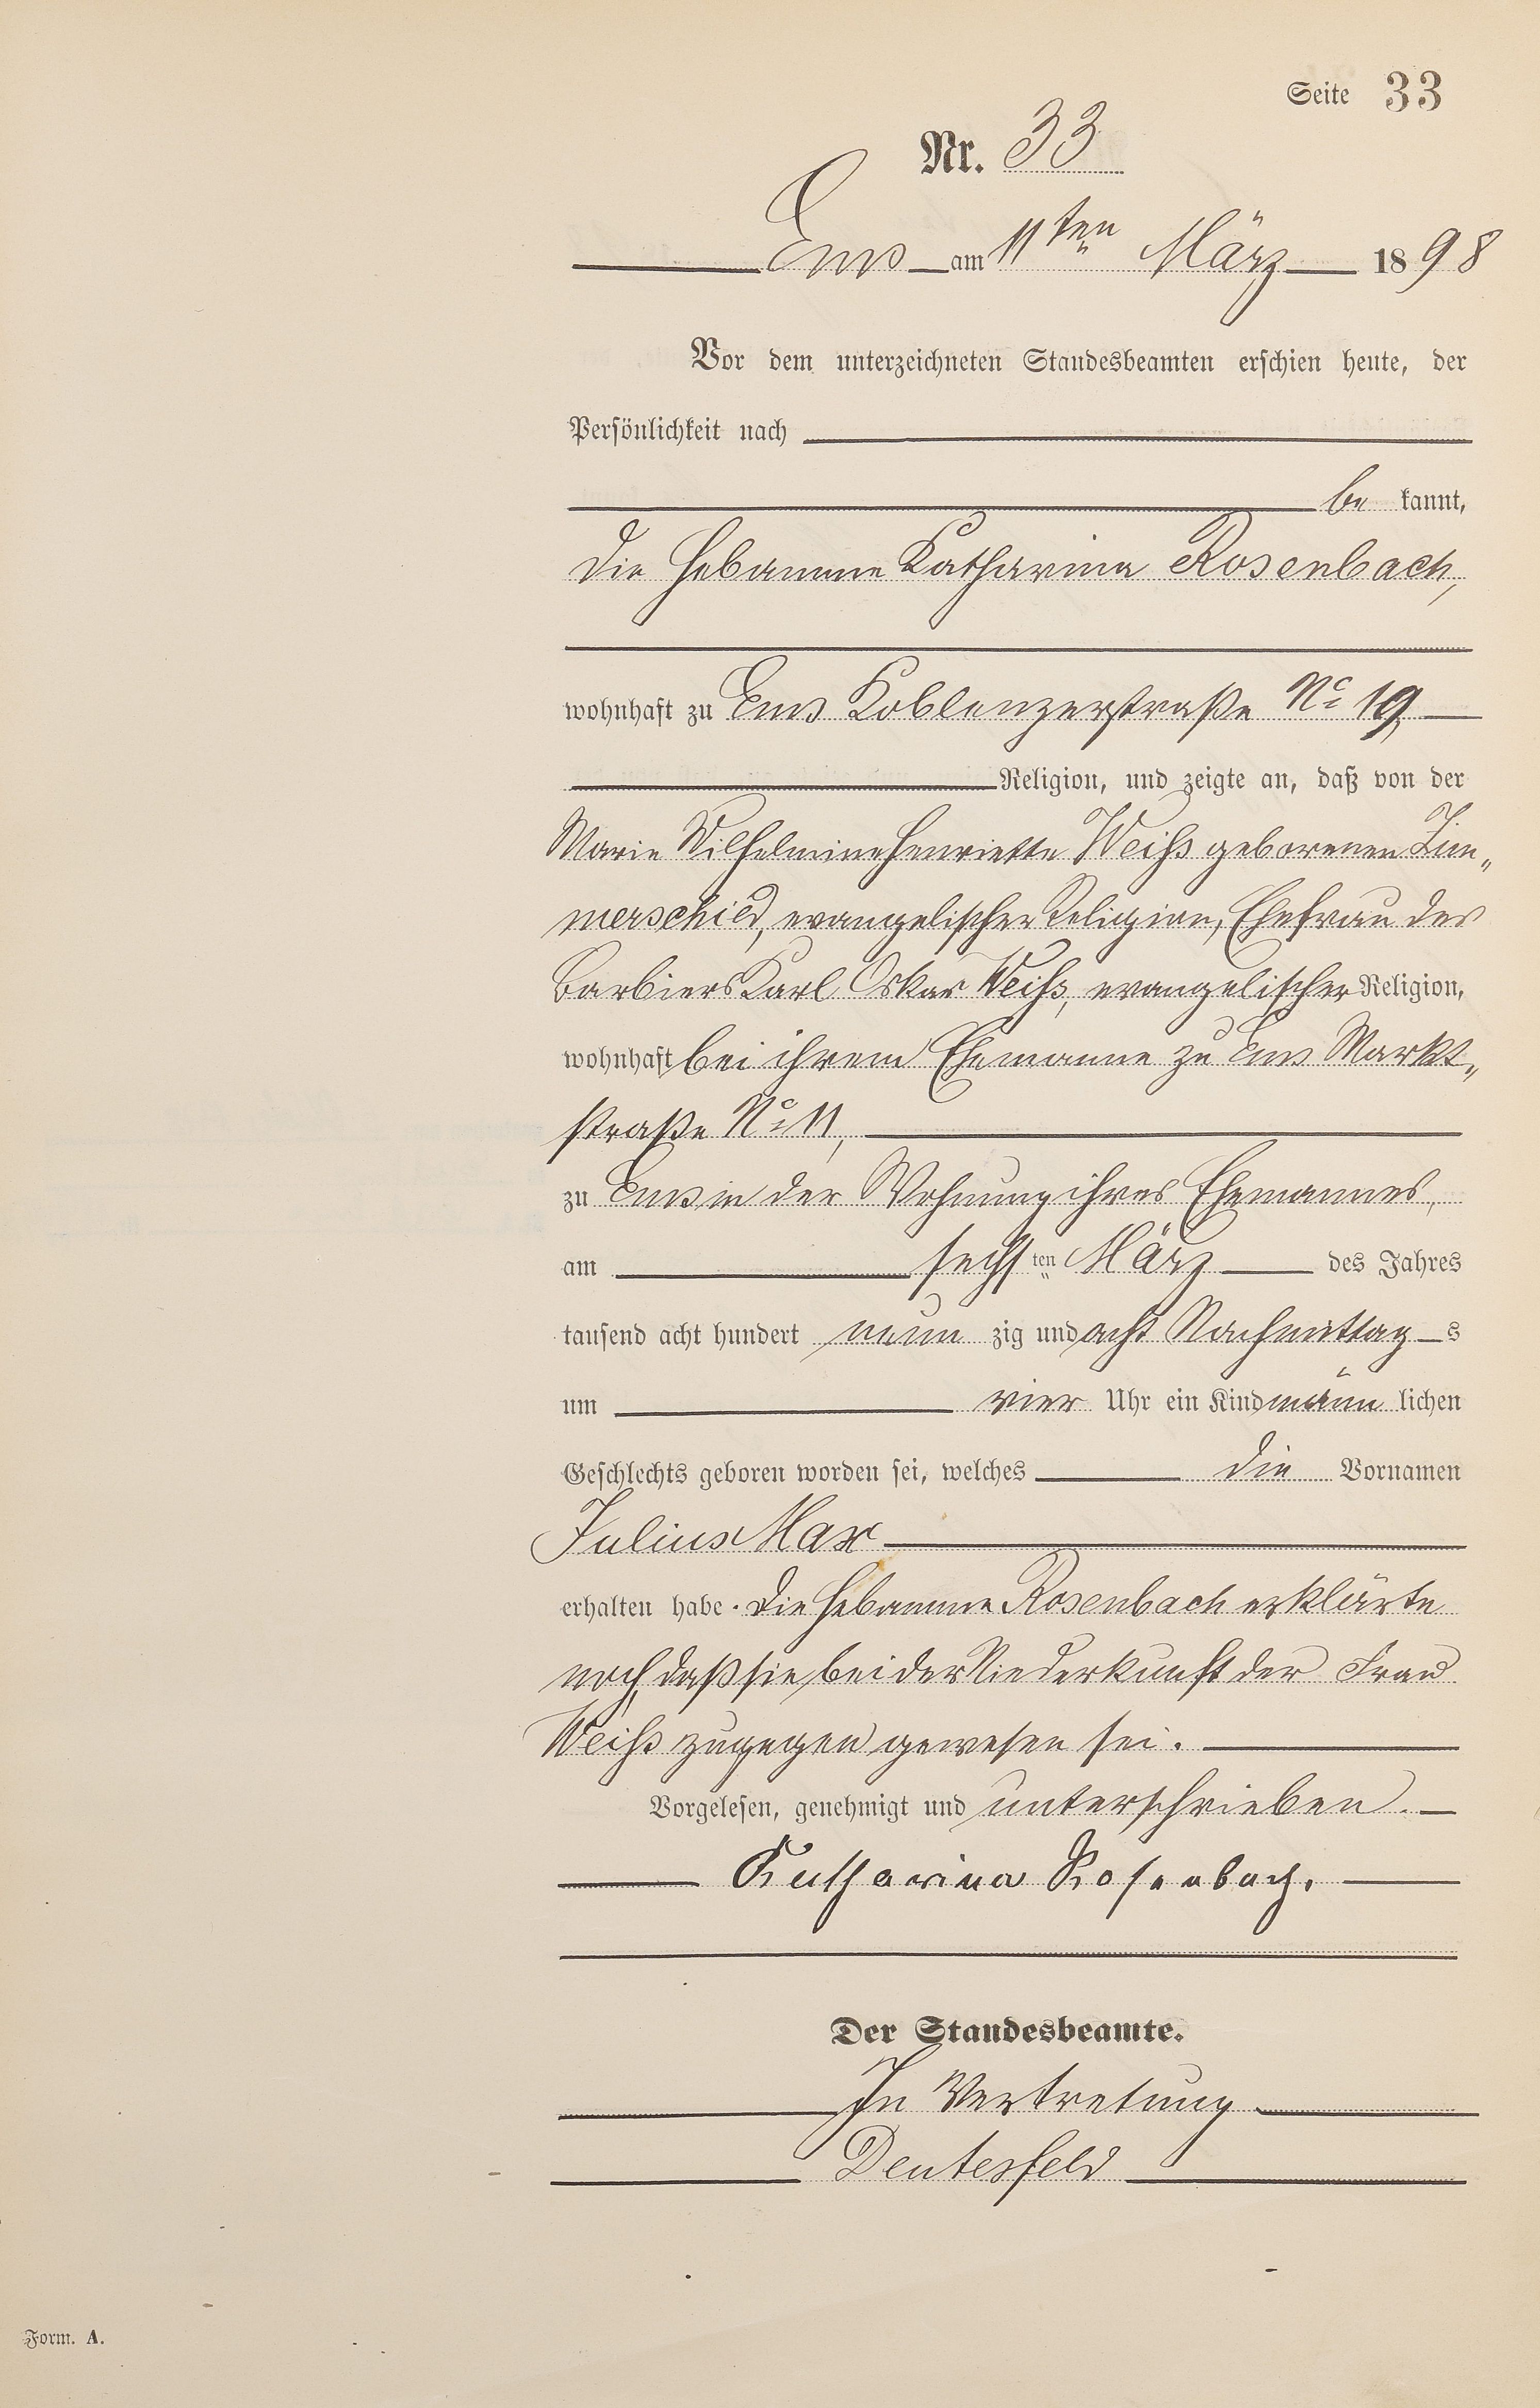 Seite 33
Nr. 33
Ems am 11ten März 1898
Vor dem unterzeichneten Standesbeamten erschien heute, der
Persönlichkeit nach
be kannt,
die Hebamme Katharina Rosenbach,
wohnhaft zu Ems Koblenzerstraße No 19
Religion, und zeigte an, daß von der
Marie Wilhelmine Henriette Weiß geborenen Zim„
merschied, evangelischer Religion, Ehefrau des
Barbiers Karl Oskar Weiß, evangelischer Religion,
wohnhaft bei ihrem Ehemanne zu Ems Markt„
straße No 11,
zu Ems in der Wohnung ihres Ehemannes,
am sechsten März des Jahres
tausend acht hundert neun zig und acht Nachmittag s
um vier Uhr ein Kind männ lichen
Geschlechts geboren worden sei, welches die Vornamen
Julius Max
erhalten habe. Die Hebamme Rosenbach erklärte
noch, daß sie bei der Niederkunft der Frau
Weiß zugegen gewesen sei.
Vorgelesen, genehmigt und unterschrieben.
Katharina Rosenbach.
Der Standesbeamte.
In Vertretung
Deutesfeld
Form. A.